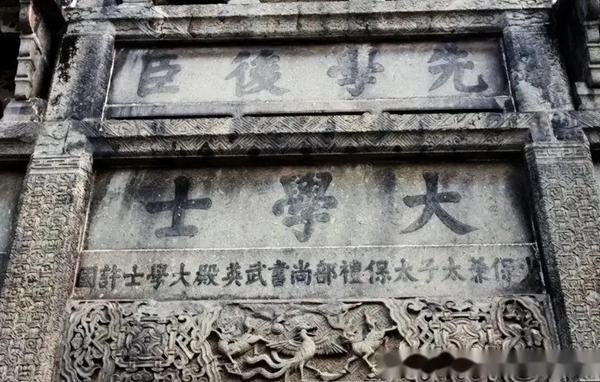 先學後臣
大學士
少保兼太子太保禮部尚書武英殿大學士許國